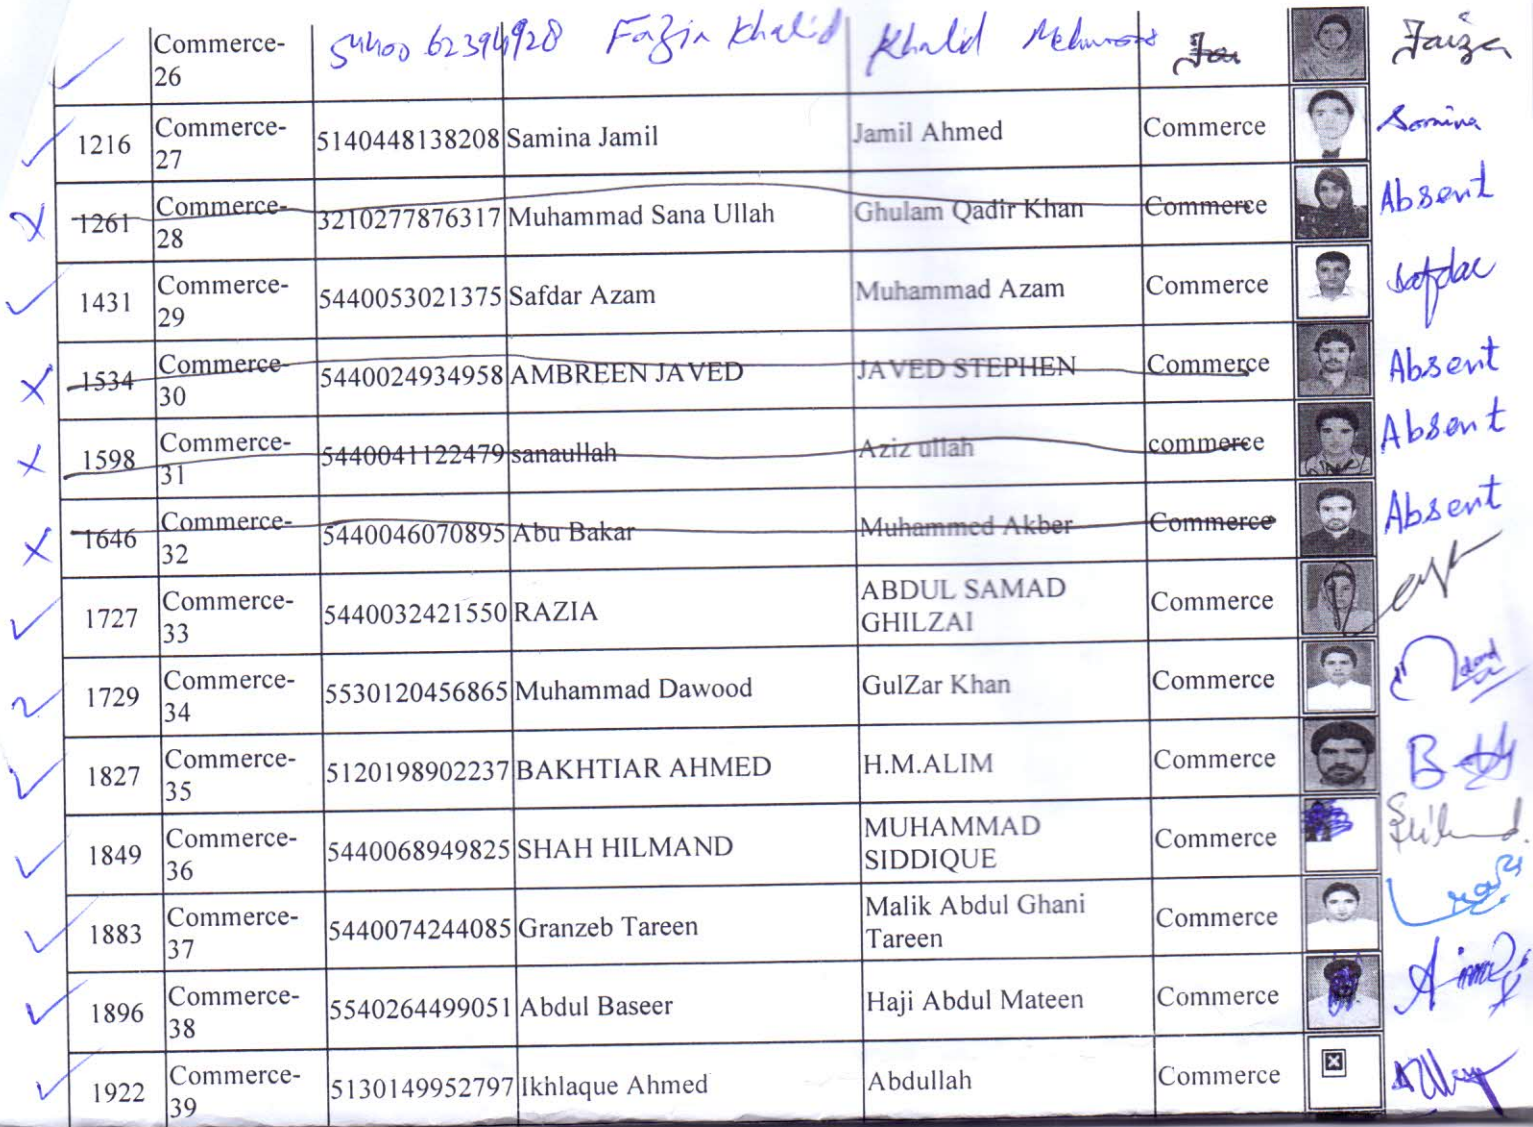 Commerce-
26
5440062394928 Fazia Khalid Khalid Mehmood Faiza
1216 Commerce-
27 5140448138208 Samina Jamil Jamil Ahmed Commerce Samina
1261 Commerce-
28 3210277876317 Muhammad Sana Ullah Ghulam Qadir Khan Commerce Absent
1431 Commerce-
29 5440053021375 Safdar Azam Muhammad Azam Commerce Safdar
1534 Commerce-
30 5440024934958 AMBREEN JAVED JAVED STEPHEN Commerce Absent
1598 Commerce-
31 5440041122479 sanaullah Aziz ullah commerce Absent
1646 Commerce-
32 5440046070895 Abu Bakar Muhammed Akber Commerce Absent
1727 Commerce-
33 5440032421550 RAZIA ABDUL SAMAD
GHILZAI Commerce
1729 Commerce-
34 5530120456865 Muhammad Dawood GulZar Khan Commerce
1827 Commerce-
35 5120198902237 BAKHTIAR AHMED H.M.ALIM Commerce
1849 Commerce-
36 5440068949825 SHAH HILMAND MUHAMMAD
SIDDIQUE Commerce
1883 Commerce-
37 5440074244085 Granzeb Tareen Malik Abdul Ghani
Tareen Commerce
1896 Commerce-
38 5540264499051 Abdul Baseer Haji Abdul Mateen Commerce
1922 Commerce-
39 5130149952797 Ikhlaque Ahmed Abdullah Commerce